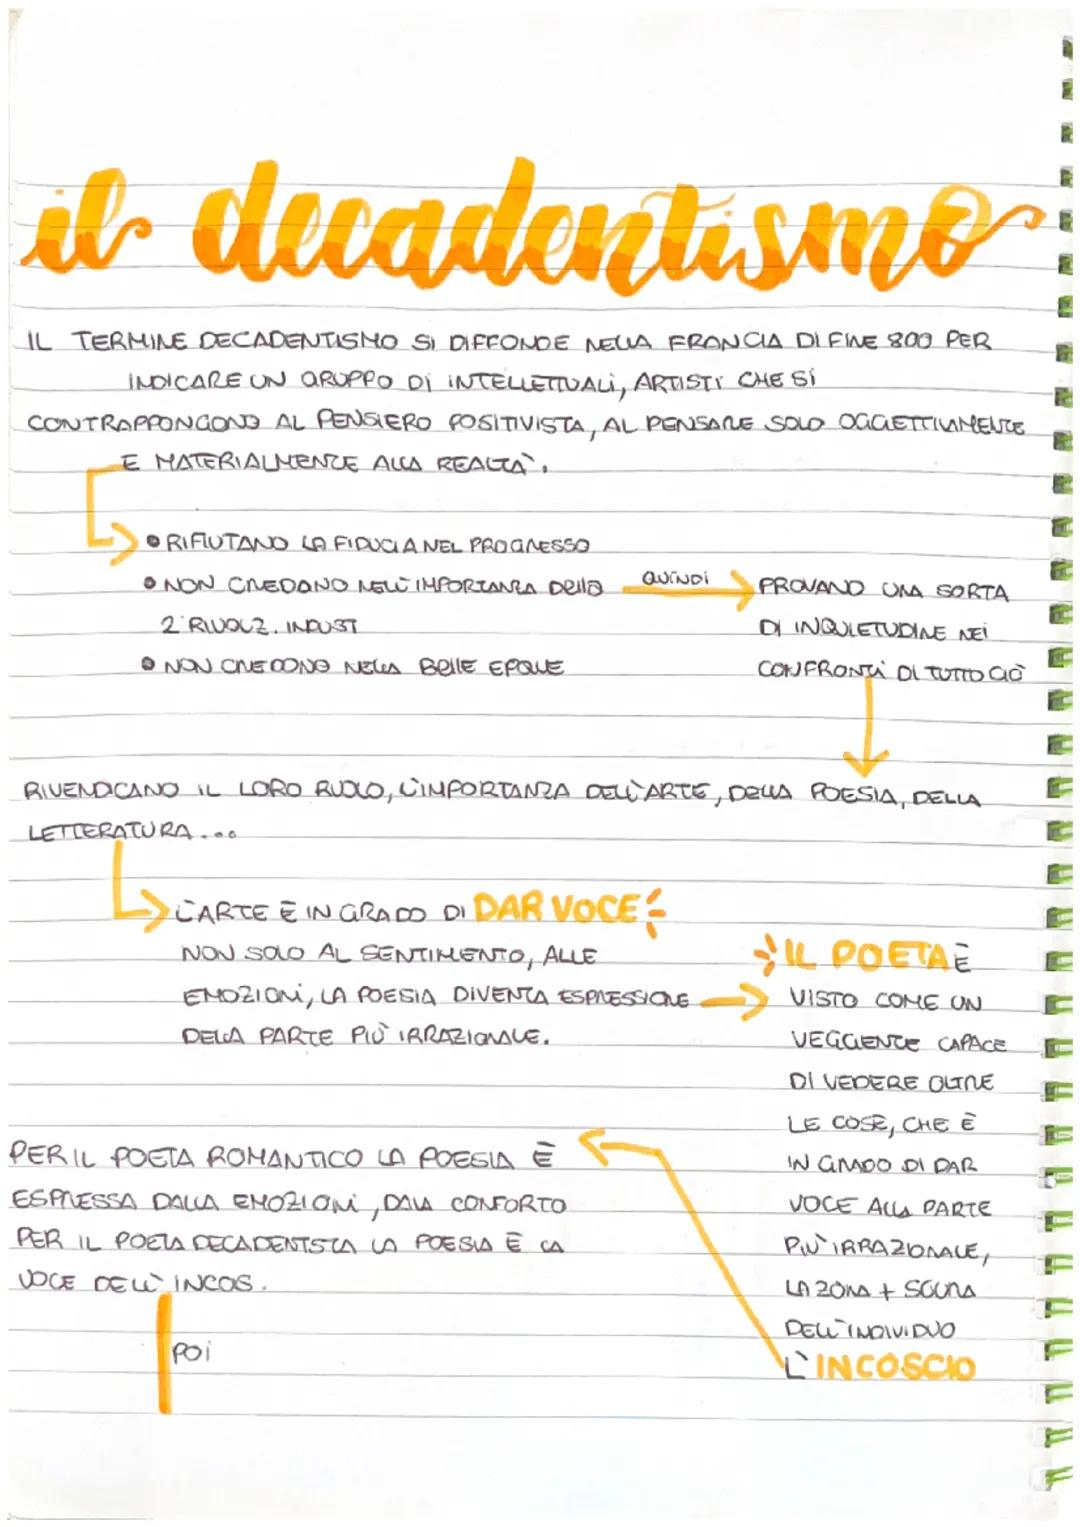 il decadentismo
IL TERMINE DECADENTISMO SI DIFFONDE NELLA FRANCIA DI FINE 800 PER
INDICARE UN GRUPPO Di iNTELLETTUALi, ARTISTi CHE Si
CONTRAPPONGONO AL PENSIERO POSITIVISTA, AL PENSARE SOLO OGGETTIVAMENTE
E MATERIALMENTE ALLA REALTA'.
• RIFIUTANO LA FIDUCIA NEL PROGRESSO
• NON CREDANO NELL'IMPORTANZA Della
2° RIVOLZ. INDUST
• NON CREDONO NELLA Belle EPOQUE
QUiNDi
PROVANO UNA SORTA
DI INQUIETUDINE NEi
CONFRONTi DI TUTTO CIÒ
RIVENDICANO IL LORO RUOLO, L'IMPORTANZA DELL'ARTE, DELLA POESIA, DELLA
LETTERATURA...
L'ARTE È IN GRADO DI DAR VOCE
NON SOLO AL SENTIMENTO, ALLE
EMOZIONi, LA POESIA DIVENTA ESPRESSIONE
DELLA PARTE PIÙ IRRAZIONALE.
IL POETA È
VISTO COME UN
VEGGENTE CAPACE
DI VEDERE OLTRE
LE COSE, CHE È
IN GRADO DI DAR
VOCE ALLA PARTE
PIU' IRRAZIONALE,
LA ZONA + SCURA
DELL'INDIVIDUO
L'INCOSCIO
PER IL POETA ROMANTICO LA POESIA È
ESPRESSA DALLA EMOZIONi, DAVA CONFORTO
PER IL POETA DECADENTISTA LA POESIA È LA
VOCE DELL'INCOS.
POi